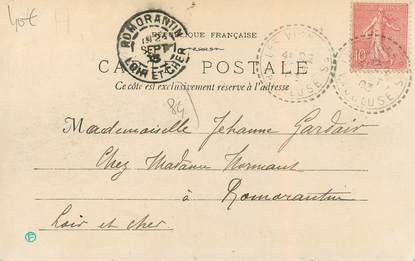 40€ H
ROMORANTIN
SEPT
LOIR-ET-CHER
RÉPUBLIQUE FRANÇAISE
CARTE POSTALE
Ce côté est exclusivement réservé à l'adresse
10
03
Mademoiselle Jehanne Gardair
Chez Madame Normant
à Romorantin
Loir et cher
F